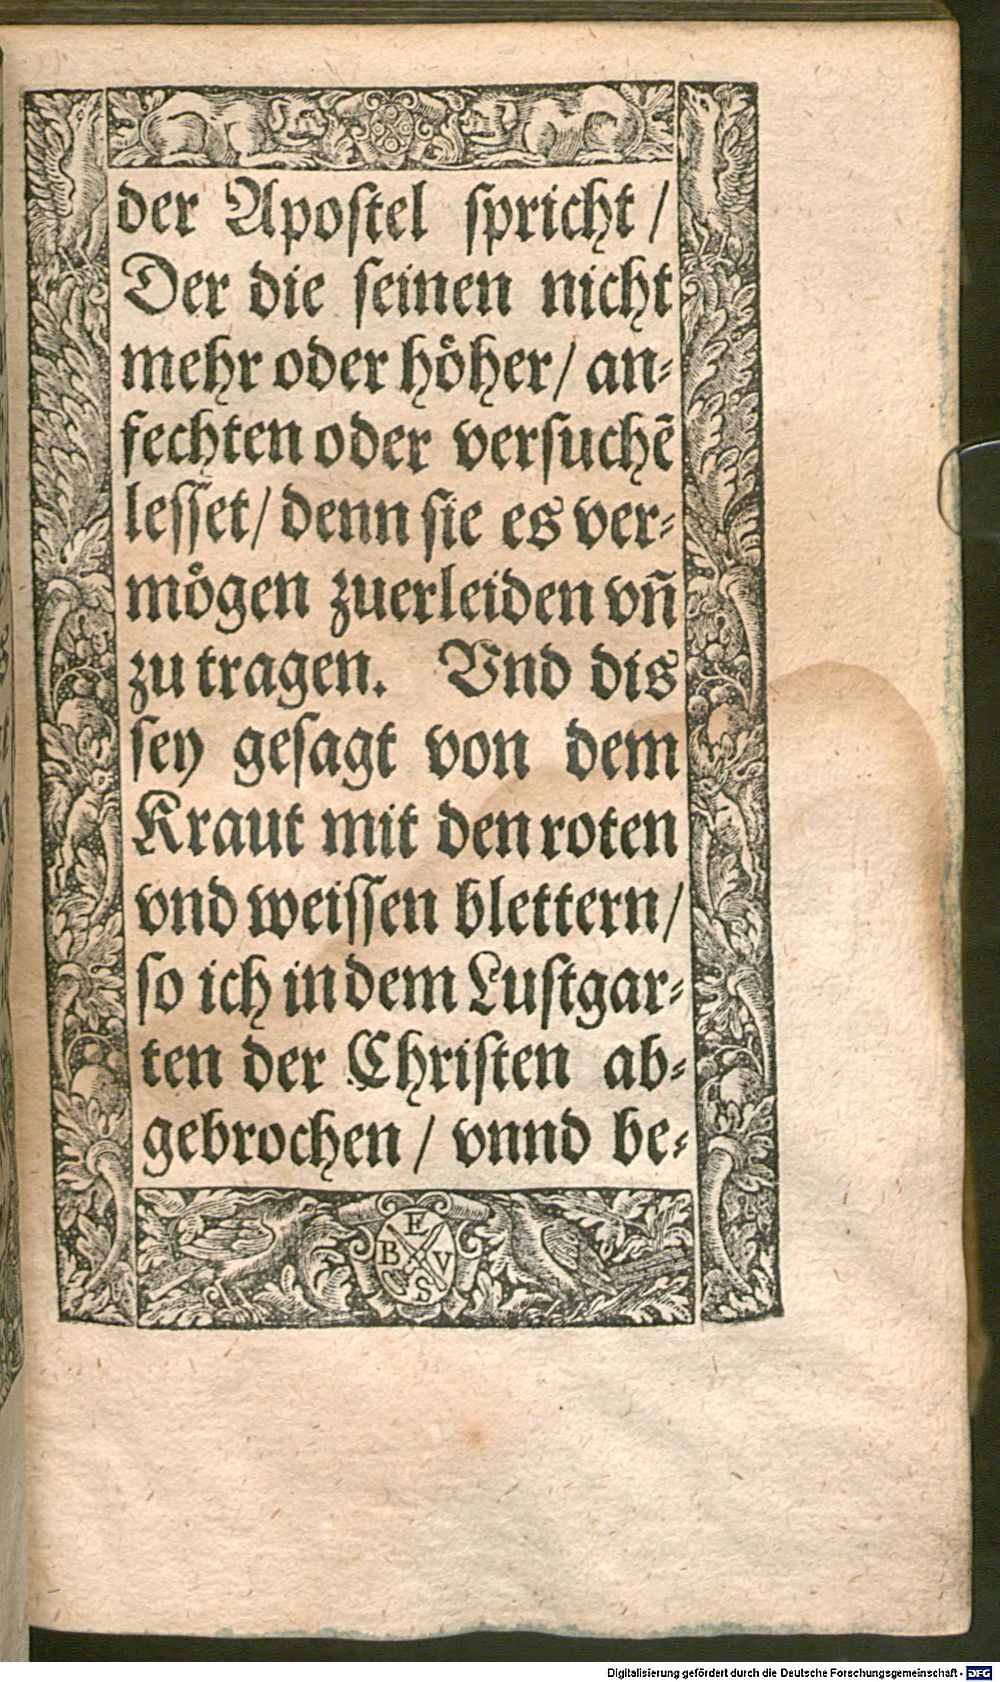 der Apoſtel ſpricht /
Der die ſeinen nicht
mehr oder hoͤher / an⸗
fechten oder verſuchẽ
leſſet / denn ſie es ver⸗
moͤgen zuerleiden vñ
zu tragen. Vnd dis
ſey geſagt von dem
Kraut mit den roten
vnd weiſſen blettern /
ſo ich in dem Luſtgar⸗
ten der Chriſten ab⸗
gebrochen / vnnd be⸗
E
B V
S
Digitalisierung gefördert durch die Deutsche Forschungsgemeinschaft - DFG